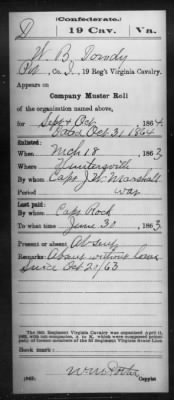 (Confederate.)
D 19 Cav. Va.
W. B. Dowdy
Pvt, Co. I, 19 Reg't Virginia Cavalry.
Appears on
Company Muster Roll
of the organization named above,
for Sept & Oct, 1864.
dated Oct 31 1864
Enlisted:
When Mch 18, 1863
Where Huntersville
By whom Capt J. W. Marshall
Period war
Last paid:
By whom Capt Rock
To what time June 30, 1863
Present or absent Absent
Remarks: Absent without leave
since Oct 20/63
The 19th Regiment Virginia Cavalry was organized April 11,
1863, with ten companies,
of the 3d Regiment Virginia State Line
Book mark:
Copyist.